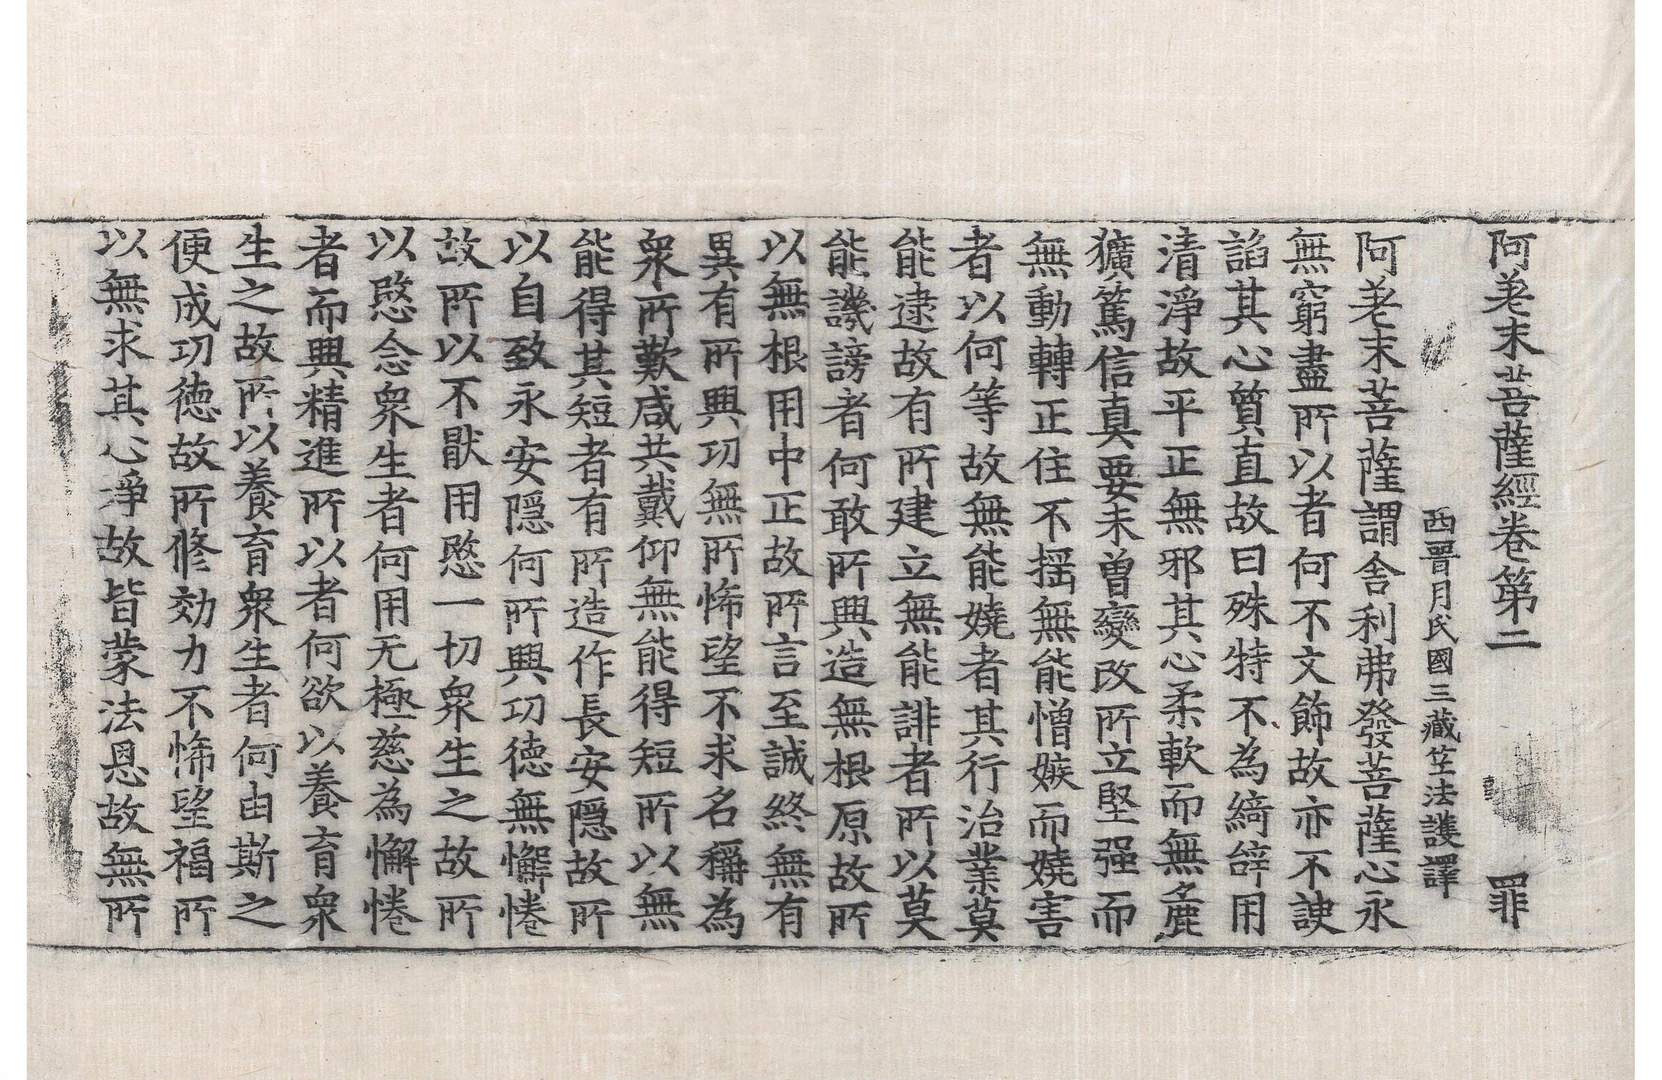 阿差末菩薩經卷第二 罪
西晉月氏國三藏竺法護譯
阿差末菩薩謂舍利弗發菩薩心永
無窮盡所以者何不文飾故亦不諛
諂其心質直故曰殊特不為綺辝用
清淨故平正無邪其心柔軟而無麁
獷篤信真要未曾變改所立堅强而
無動轉正住不揺無能憎嫉而嬈害
者以何等故無能嬈者其行治業莫
能逮故有所建立無能誹者所以莫
能譏謗者何敢所興造無根原故所
以無根用中正故所言至誠終無有
異有所興功無所悕望不求名稱為
衆所歎咸共戴仰無能得短所以無
能得其短者有所造作長安隱故所
以自致永安隱何所興功德無懈惓
故所以不猒用愍一切衆生之故所
以愍念衆生者何用无極慈為懈惓
者而興精進所以者何欲以養育衆
生之故所以養育衆生者何由斯之
便成功德故所修効力不悕望福所
以無求其心淨故皆蒙法恩故無所